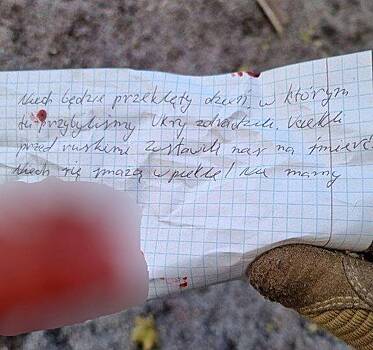 Niech będzie przeklęty dzień, w którym
tu przybyliśmy Ukry zdradzili. Uciekli
przed ruskimi Zostawili nas na śmierć.
Niech się smażą w piekle! Nie mamy